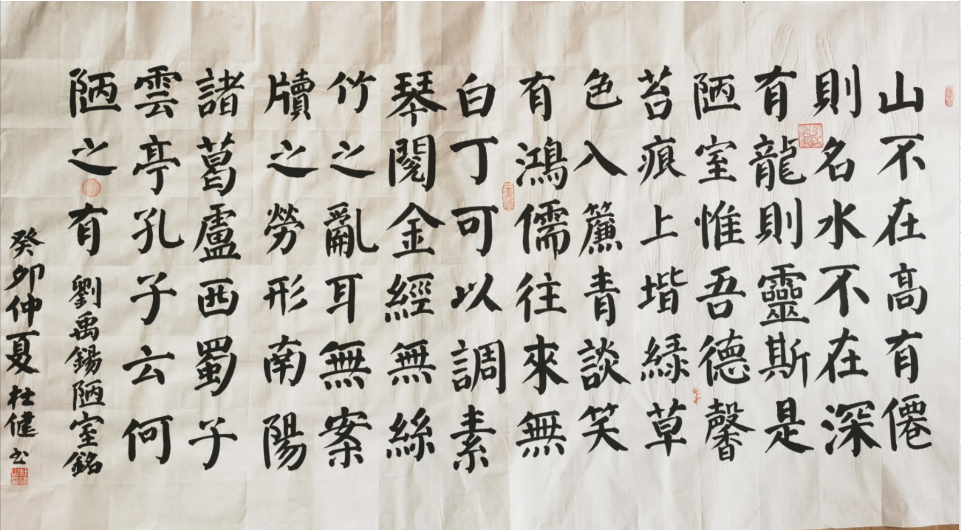 山不在高有僊
則名水不在深
有龍則靈斯是
陋室惟吾德馨
苔痕上堦緑草
色入簾青談笑
有鴻儒往來無
白丁可以調素
琴閱金經無絲
竹之亂耳無案
牘之勞形南陽
諸葛盧西蜀子
雲亭孔子云何
陋之有
劉禹錫陋室銘
癸卯仲夏杜健书